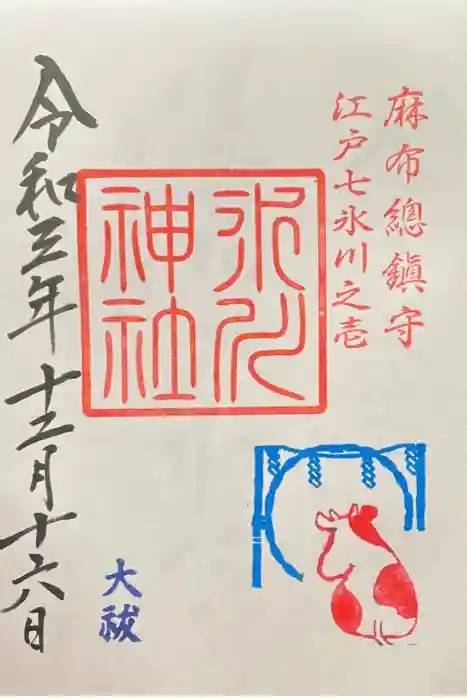 麻布總鎮守
江戸七氷川之壱
氷川
神社
大祓
令和三年十二月十六日